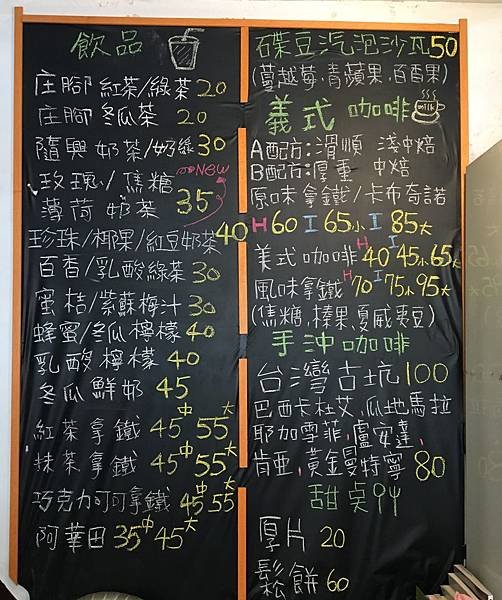 飲品
庄腳 紅茶/綠茶 20
庄腳 冬瓜茶 20
隨興 奶茶/奶綠 30
New
玫瑰/焦糖
薄荷 奶茶 35
珍珠/椰果/紅豆奶茶 40
百香/乳酸綠茶 30
蜜桔/紫蘇梅汁 30
蜂蜜/冬瓜檸檬 40
乳酸檸檬 40
冬瓜鮮奶 45
紅茶拿鐵 45中 55大
抹茶拿鐵 45中 55大
巧克力可可拿鐵 45中 55大
阿華田 35中 45大
碟豆汽泡沙瓦 50
(蔓越莓,青蘋果,百香果)
義式 咖啡 milk
A配方:滑順 淺中焙
B配方:厚重 中焙
原味 拿鐵/卡布奇諾
H 60 I 65小 I 85大
美式咖啡 H 40 I 45小 65大
風味拿鐵 H 70 I 75小 95大
(焦糖.榛果.夏威夷豆)
手沖咖啡
台灣古坑 100
巴西卡杜艾.瓜地馬拉
耶加雪菲.盧安達.
肯亞.黃金曼特寧 80
甜点
厚片 20
鬆餅 60